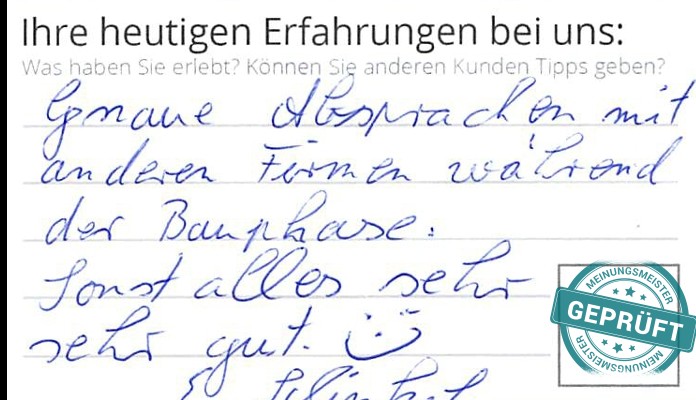 Ihre heutigen Erfahrungen bei uns:
Was haben Sie erlebt? Können Sie anderen Kunden Tipps geben?
Genaue Absprachen mit
anderen Firmen während
der Bauphase.
Sonst alles sehr
sehr gut.
MEINUNGSMEISTER
GEPRÜFT
MEINUNGSMEISTER